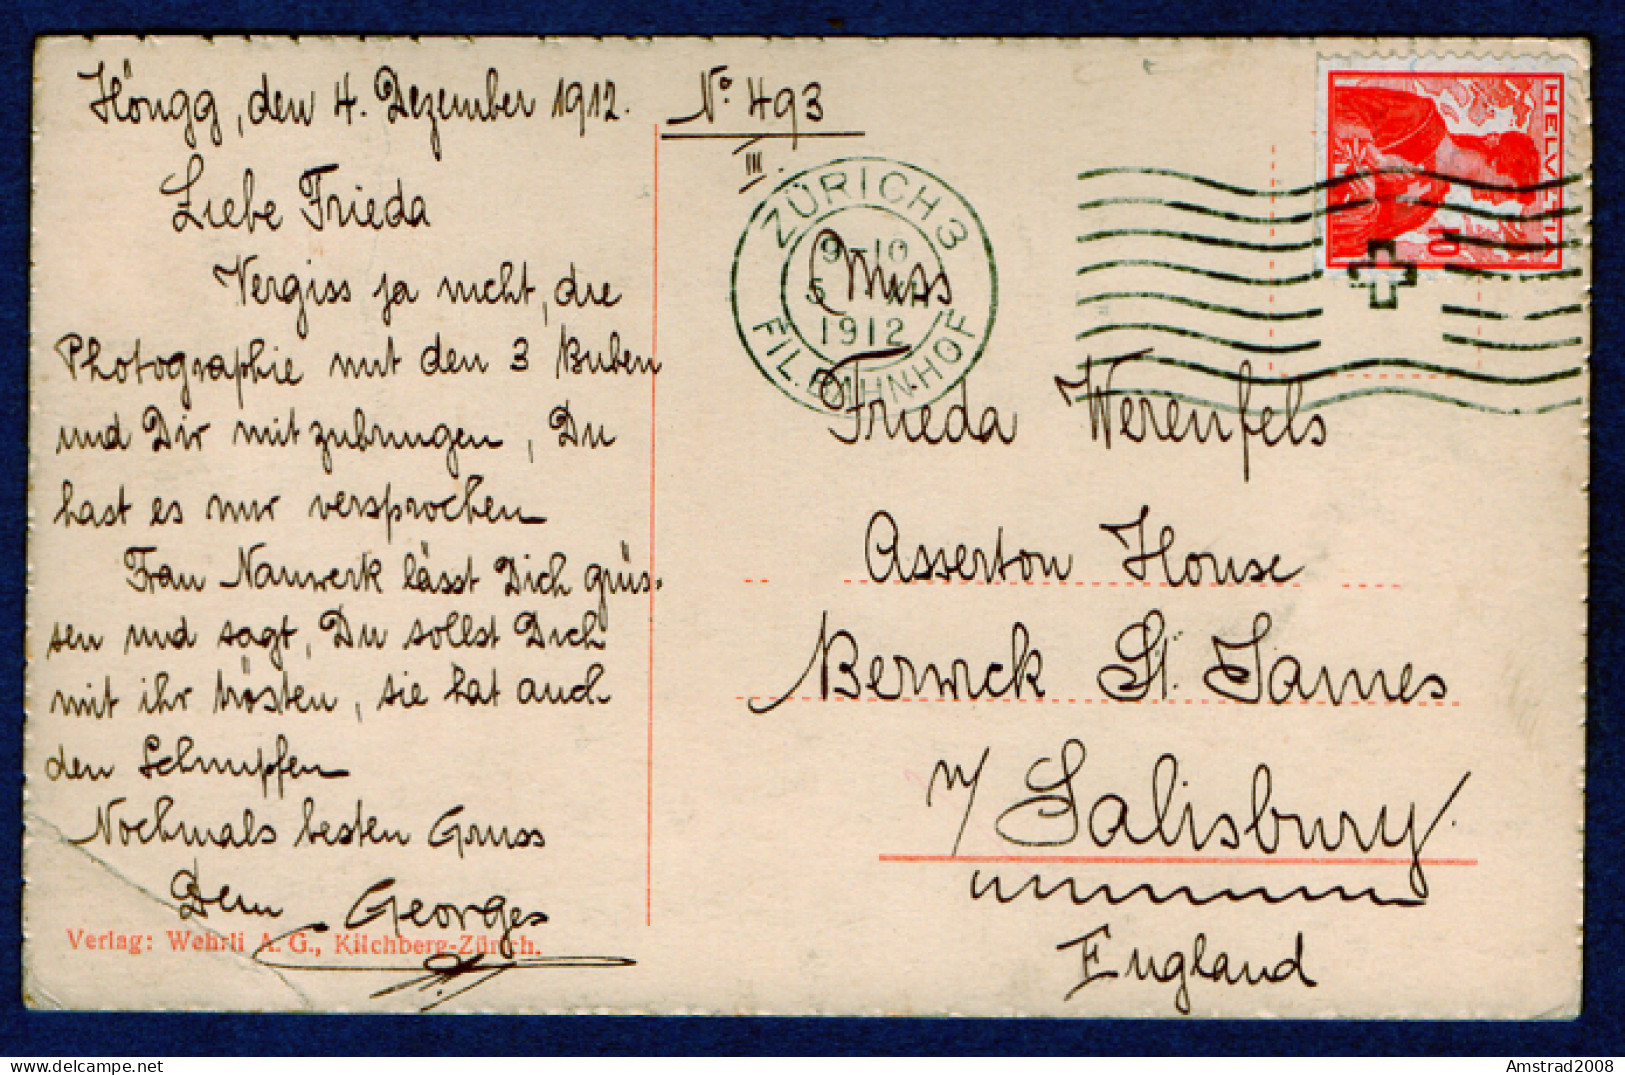 Höngg, den 4. Dezember 1912.
Liebe Frieda
Vergiss ja nicht, die
Photographie mit den 3 Buben
und Dir mitzubringen, Du
hast es mir versprochen
Frau Nauwerk lässt Dich grüs-
sen und sagt, Du sollst Dich
mit ihr trösten, sie hat auch
den Schnupfen
Nochmals besten Gruss
Dein Georges
Verlag: Wehrli A. G., Kilchberg-Zürich.
No. 493
III.
ZÜRICH 3
9-10
5
1912
FIL. BAHNHOF
HELVETIA
10
Miss
Frieda Werenfels
Asserton House
Berwick St. James
n/ Salisbury.
England
Amstrad2008